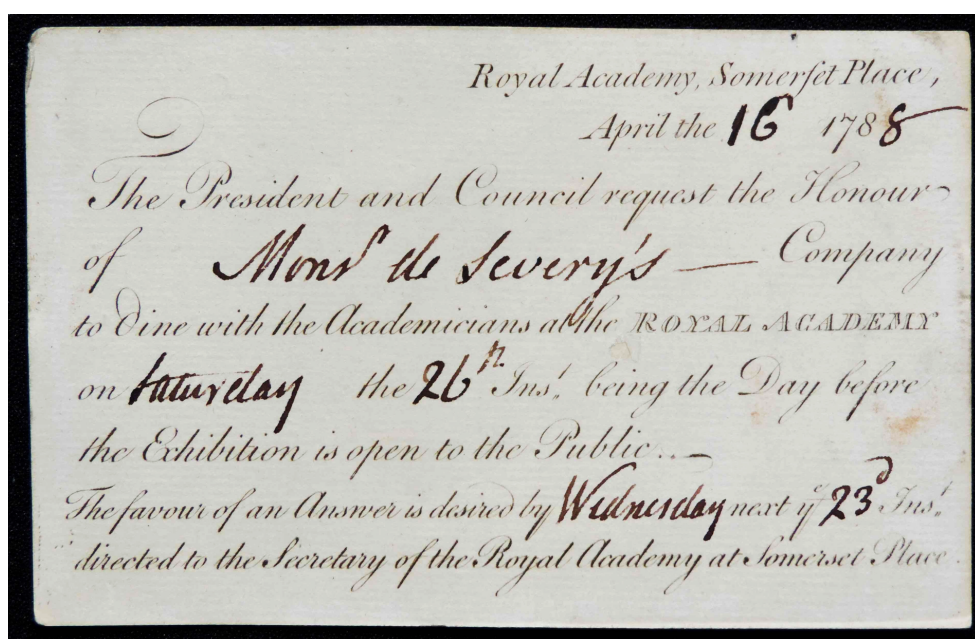 Royal Academy, Somerſet Place,
April the 16 1788
The President and Council request the Honour
of Monsr de Severy's — Company
to Dine with the Academicians at the ROYAL ACADEMY
on Saturday the 26th Inst. being the Day before
the Exhibition is open to the Public..—
The favour of an Answer is desired by Wednesday next ye 23d Inst.
directed to the Secretary of the Royal Academy at Somerset Place.